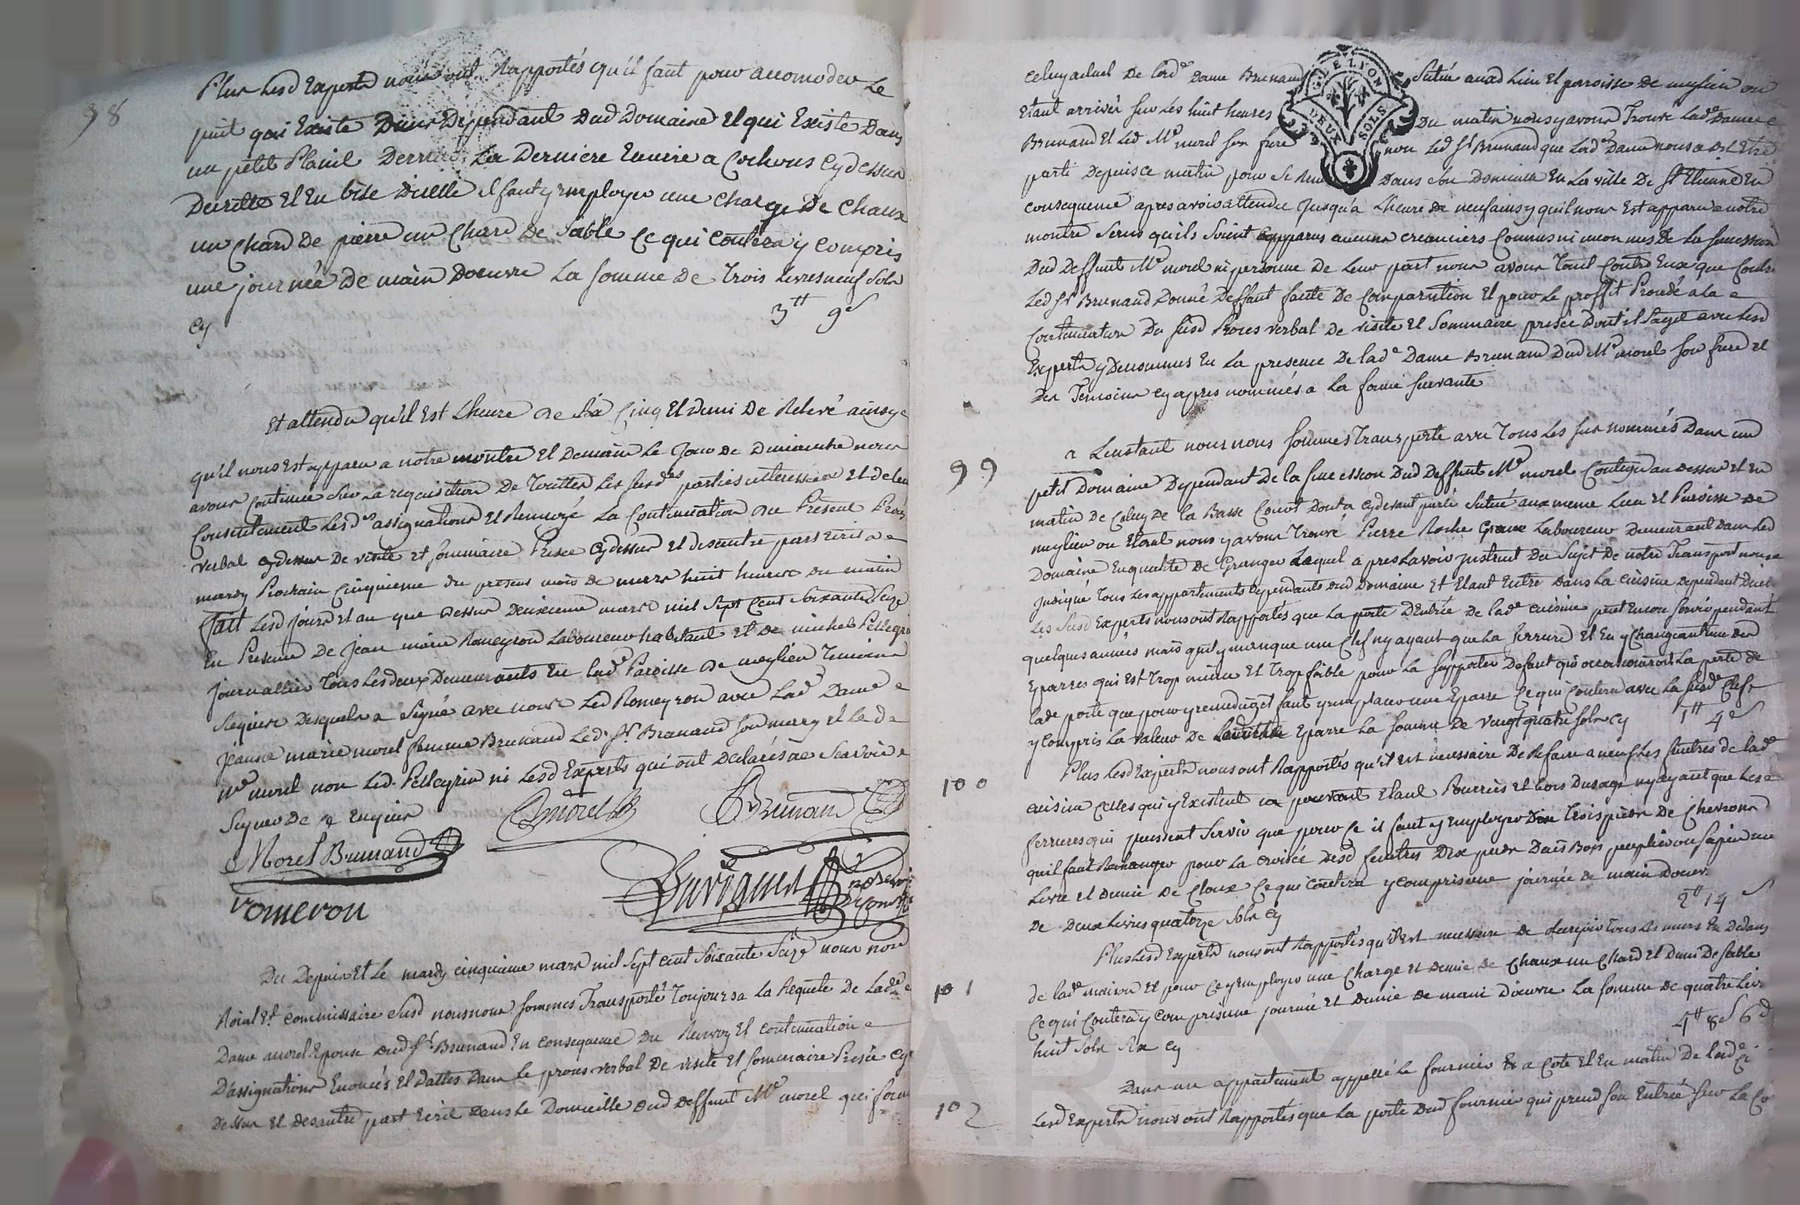 98
Plus Lesd Experts nous ont Rapportés qu'il faut pour accomoder Le
puit qui Existe Dependant Dud Domaine et qui Existe Dans
un petit Derriere La Derniere Ecurie a Cochons Cydessus
Et En bise D'icelle il faut y Employer une Charge De Chaux
un Chard De pierre un Chard De Sable Ce qui Coutera y Compris
une journée De main Doeuvre La somme De Trois Livres neuf Sols
Cy 3tt 9s
Et attendu qu'il Est L'heure De Cinq Et Demi De Relevé ainsy
qu'il nous Est apparu a notre montre Et Demain Le Jour De Dimanche nous
avons Continué Sur La requisition De Touttes Les susd. parties interessées Et De leur
Consentement Lesd. assignations Et Renvoyé La Continuation Du Present Proces
verbal cydessus De visite et sommaire Prisée Cydessus Et Desautre part Ecrit a
mardy Prochain Cinquieme du present mois de mars huit heures du matin
fait Lesd jour Et an que Dessus Deuxieme mars mil Sept Cent Soixante Seize
En Presence De Jean marie Romeyron Laboureur habitant et de michel Pellegrin
journallier Tous Lesdeux Demeurants En Lad. Paroisse De meylieu Temoins
Requis Desquels a Signé avec nous Led Romeyron avec Lad. Dame
jeanne marie morel femme Brunand Led. Sr. Brunand Son mary Et Led
me. morel non Led. Pellegrin ni Lesd Experts qui ont Declarés ne Scavoir
Signer De ce Enquis
Cmorel Brunan
Morel Brunand
romeron
Duvignat
Du Depuis Et Le mardy cinquieme mars mil Sept cent Soixante Seize nous not
Roial Et commissaire Susd nous nous sommes Transporté Toujours a La Requete De Lade
Dame morel Epouse Dud Sr. Brunand En consequence Du Renvoy Et continuation
D'assignations Enoncés Et Dattés Dans Le proces verbal De visite Et sommaire Prisée Cy
Dessus Et Desautre part Ecrit Dans Le Domicille Dud Deffunt Me morel qui forme
Celuy actuel De Lad. Dame Brunand Situé aud Lieu Et paroisse De meylieu ou
Etant arrivés sur Les huit heures Du matin nous y avons Trouvé Lad. Dame
Brunand Et Led Me morel Son frere non Led Sr Brunand que Lad. Dame nous a Dit Etre
parti Depuis ce matin pour Se Dans Son Domicile En La ville De St Etienne En
consequence apres avoir attendu Jusqu'a L'heure De neuf ainsy qu'il nous Est apparu a notre
montre Sans qu'ils Soient apparus aucuns creanciers Connus ni inconnus De La succession
Dud Deffunt Me morel ni personne De Leur part nous avons Tant Contre Eux que Contre
Led Sr Brunand Donné Deffaut faute De Comparution Et pour Le proffit Procédé a La
Continuation Du susd Proces verbal De visite Et Sommaire prisée Dont il Sagit avec Lesd
Experts y Denommés En La presence De Lad. Dame Brunand Dud Me morel Son frere et
Des Temoins cyapres nommés a La forme suivante
DE LYON
DEUX SOLS
99
a L'instant nous nous sommes Transporté avec Tous Les sus nommés Dans un
petit Domaine Dependant De la succession Dud Deffunt Me morel Contigu au Dessus Et En
matin De Celuy De la Basse Cour Dont a Cydevant parlé Situé aux meme Lieu Et Paroisse De
meylieu ou Etant nous y avons Trouvé Pierre Roche Laboureur Demeurant Dans Led
Domaine En qualité De Granger Lequel a pres Lavoir instruit Du Sujet De notre Transport nous a
Judiqué Tous Les appartements Dependants Dud Domaine Et Etant Entré Dans La cuisine Dependant
Les Susd Experts nous ont Rapportés que La porte D'Entrée De Lad. cuisine peut Encore Servir pendant
quelques années mais qu'il y manque une Clef ny ayant que La serrure Et En y Changeant
Eparres qui Est Trop minée Et Trop faible pour La Supporter Defaut qui occasionneroit La perte De
Lade porte que pour y remedier il faut y remplacer une Eparre Ce qui Coutera avec La susd. Clef
y Compris La valeur De Eparre La somme De Vingt quatre Sols Cy 1tt 4s
100
Plus Lesd Experts nous ont Rapportés qu'il Est necessaire De Refaire a neuf Les fenetres De lad.
cuisine Celles qui y Existent Etant Pourries Et hors Dusage ny ayant que Les
ferrures qui puissent Servir que pour Ce il faut y Employer Trois pieds De Chevrons
qu'il faut Remanger pour La croisée Desd fenetres Dix pieds Dais Bois peuplier ou Sapin une
Livre Et Demie De Cloux Ce qui Coutera y Compris une journée De main Doeuv.
De Deux Livres quatorze Sols Cy 2tt 14s
101
Plus Lesd Experts nous ont Rapportés qu'il Est necessaire De Recrepir Tous Les murs En Dedans
De lad. maison Et pour Ce y Employer une Charge Et Demie de Chaux un Chard Et Demi De Sable
Ce qui Coutera y Compris une journée Et Demie De main D'oeuvre La somme De quatre Livr
huit Sols Six Cy 4tt 8s 6d
102
Dans un appartement appellé Le fournier a Coté Et En matin De Lad.
Lesd Experts nous ont Rapportés que La porte Dud fournier qui prend Son Entrée Sur La Co